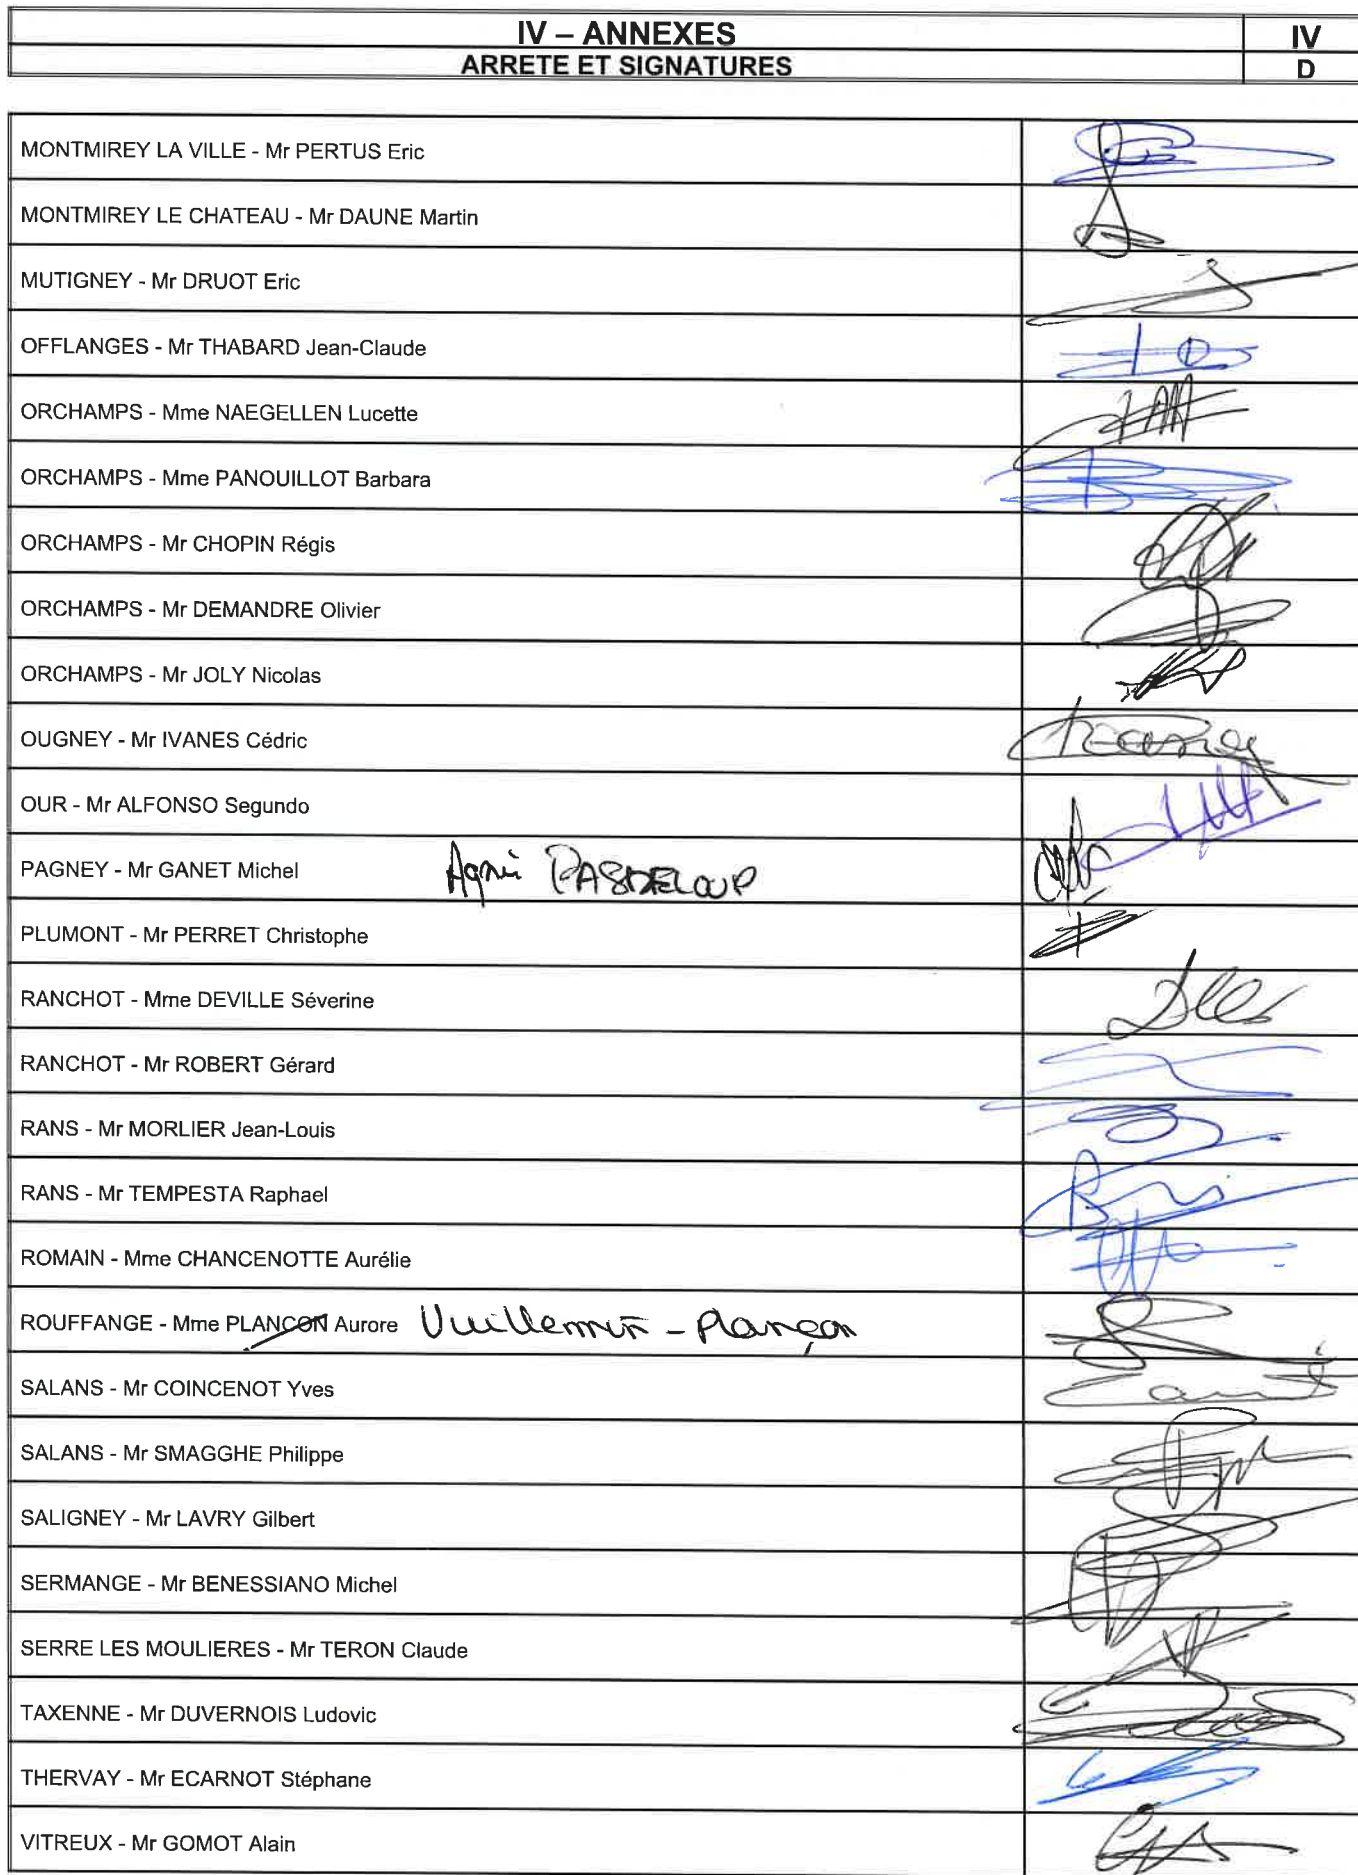 IV – ANNEXES
IV
ARRETE ET SIGNATURES
D
MONTMIREY LA VILLE - Mr PERTUS Eric
MONTMIREY LE CHATEAU - Mr DAUNE Martin
MUTIGNEY - Mr DRUOT Eric
OFFLANGES - Mr THABARD Jean-Claude
ORCHAMPS - Mme NAEGELLEN Lucette
ORCHAMPS - Mme PANOUILLOT Barbara
ORCHAMPS - Mr CHOPIN Régis
ORCHAMPS - Mr DEMANDRE Olivier
ORCHAMPS - Mr JOLY Nicolas
OUGNEY - Mr IVANES Cédric
OUR - Mr ALFONSO Segundo
PAGNEY - Mr GANET Michel PASDELOUP
PLUMONT - Mr PERRET Christophe
RANCHOT - Mme DEVILLE Séverine
RANCHOT - Mr ROBERT Gérard
RANS - Mr MORLIER Jean-Louis
RANS - Mr TEMPESTA Raphael
ROMAIN - Mme CHANCENOTTE Aurélie
ROUFFANGE - Mme PLANCON Aurore Vuillemin - Plançon
SALANS - Mr COINCENOT Yves
SALANS - Mr SMAGGHE Philippe
SALIGNEY - Mr LAVRY Gilbert
SERMANGE - Mr BENESSIANO Michel
SERRE LES MOULIERES - Mr TERON Claude
TAXENNE - Mr DUVERNOIS Ludovic
THERVAY - Mr ECARNOT Stéphane
VITREUX - Mr GOMOT Alain